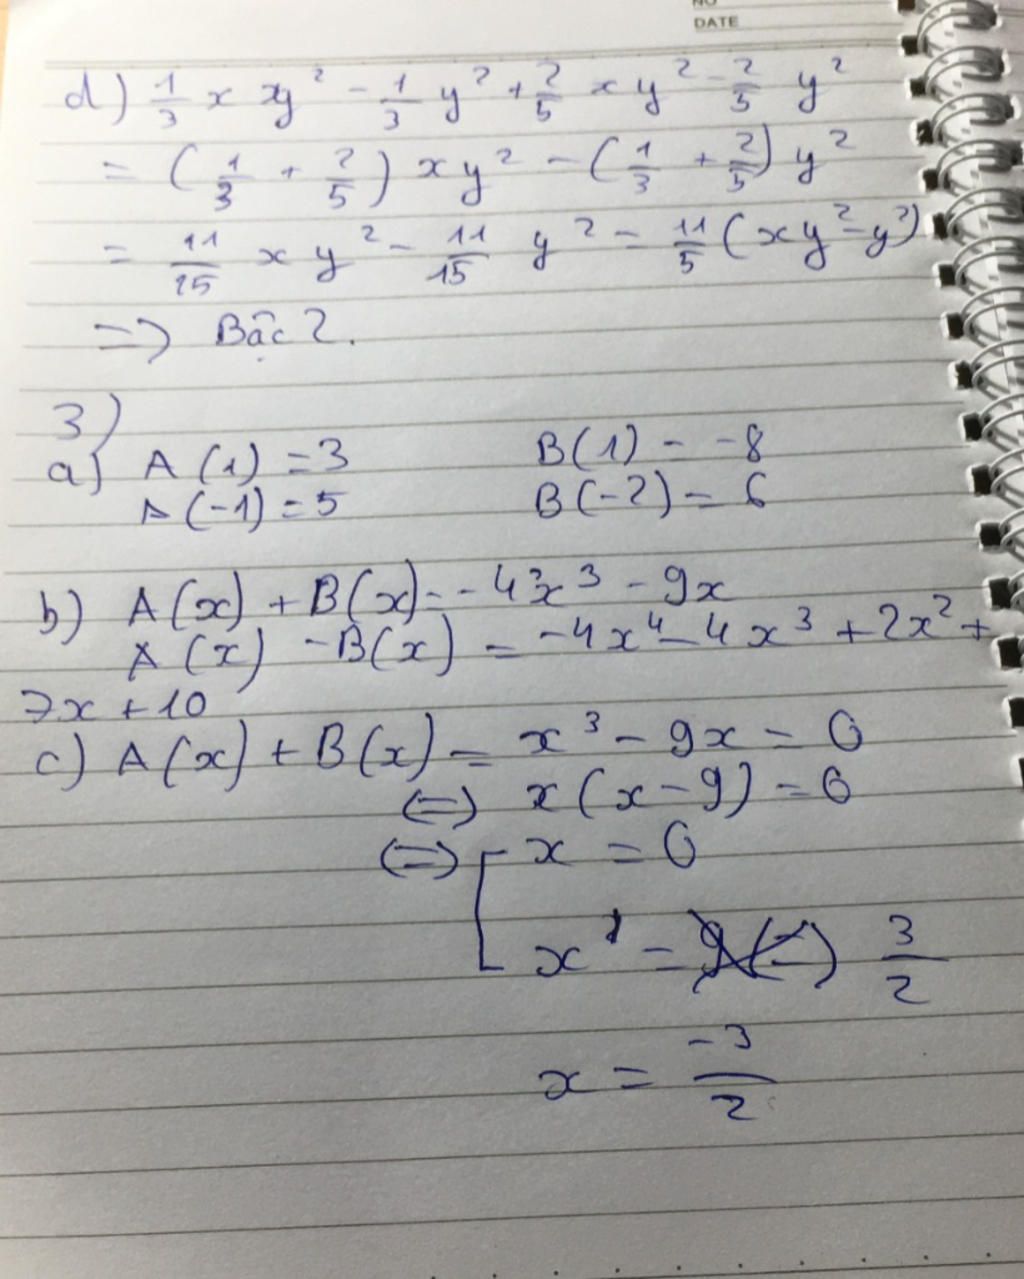 NO
DATE
d) 1/3 x xy² - 1/3 y² + 2/5 xy² - 2/5 y²
= (1/3 + 2/5) xy² - (1/3 + 2/5) y²
= 11/15 xy² - 11/15 y² = 11/5 (xy² - y²)
=> Bậc 2.
3)
a) A(1) = 3 B(1) = -8
A(-1) = 5 B(-2) = 6
b) A(x) + B(x) = -4x³ - 9x
A(x) - B(x) = -4x⁴ - 4x³ + 2x² +
7x + 10
c) A(x) + B(x) = x³ - 9x = 0
(=) x(x - 9) = 0
(=) [ x = 0
x = 3/2
x = -3/2